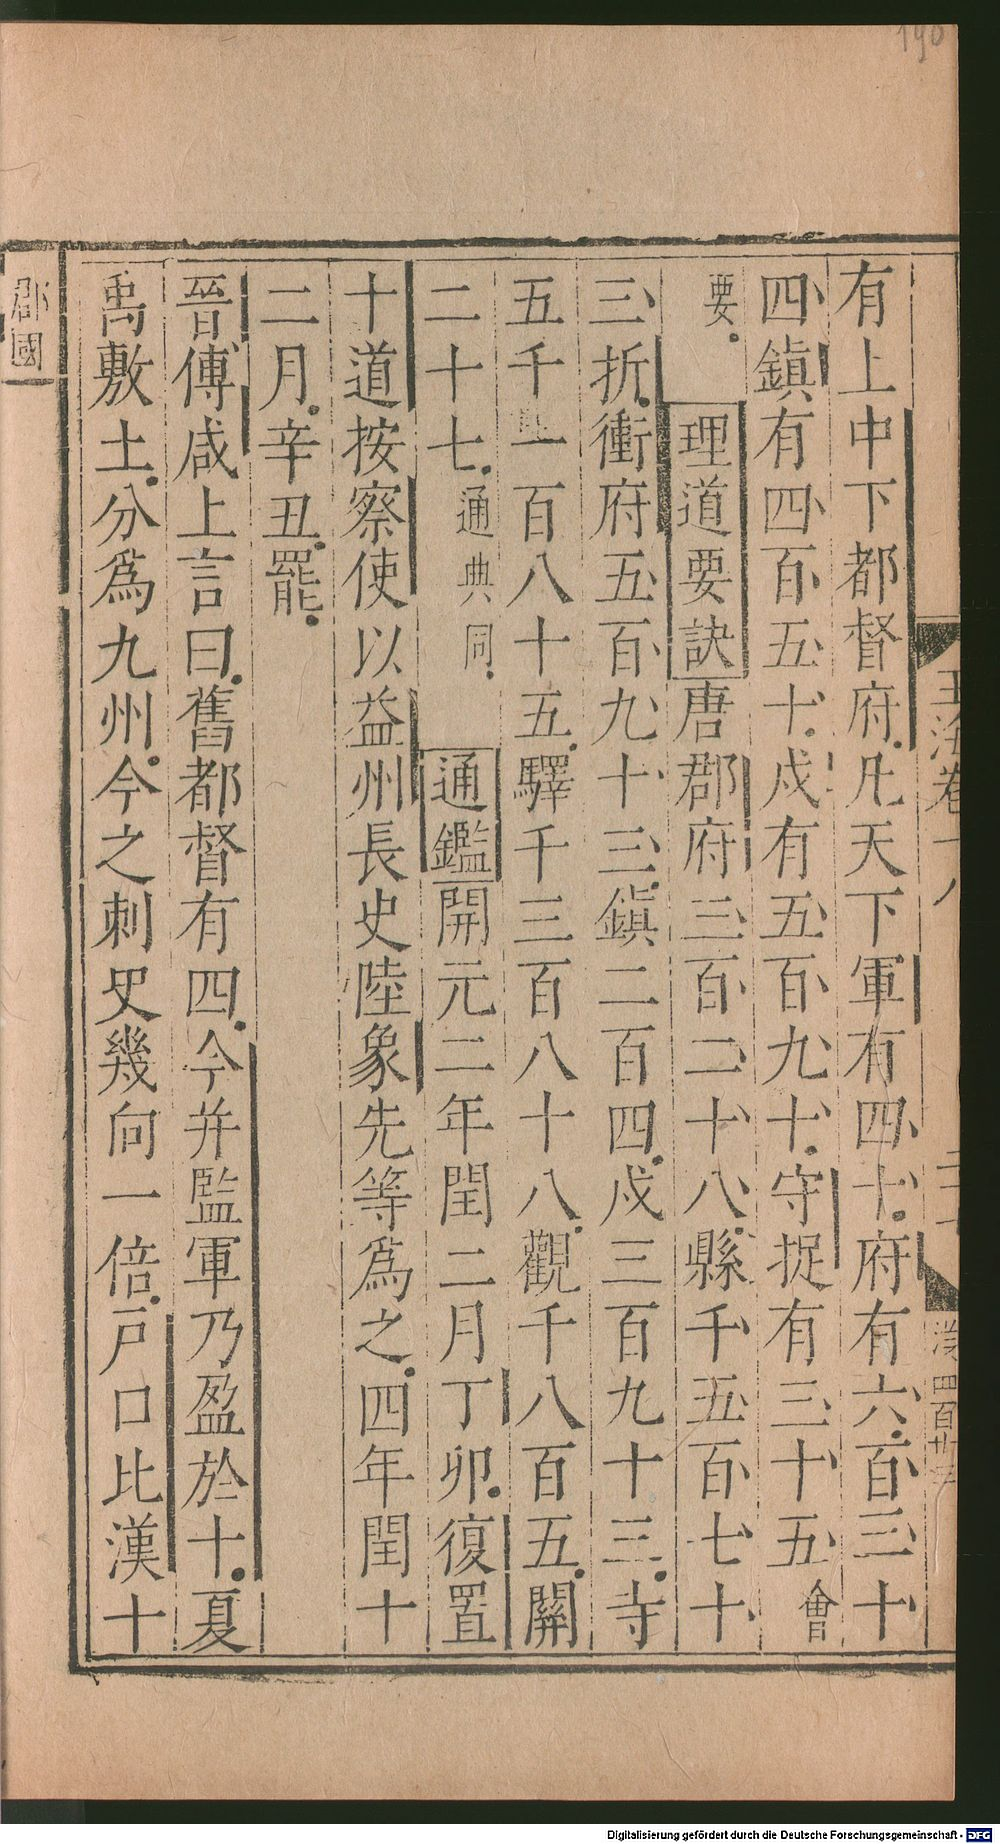 190
有上中下都督府凡天下軍有四十府有六百三十
四鎮有四百五十戍有五百九十守捉有三十五會
要
理道要訣唐郡府三百二十八縣千五百七十
三折衝府五百九十三鎮二百四戍三百九十三寺
五千一百八十五驛千三百八十八觀千八百五關
二十七通典同通鑑開元二年閏二月丁卯復置
十道按察使以益州長史陸象先等爲之四年閏十
二月辛丑罷
晉傅咸上言曰舊都督有四今并監軍乃盈於十夏
禹敷土分爲九州今之刺史幾向一倍戶口比漢十
郡國
玉海卷十八
Digitalisierung gefördert durch die Deutsche Forschungsgemeinschaft - DFG